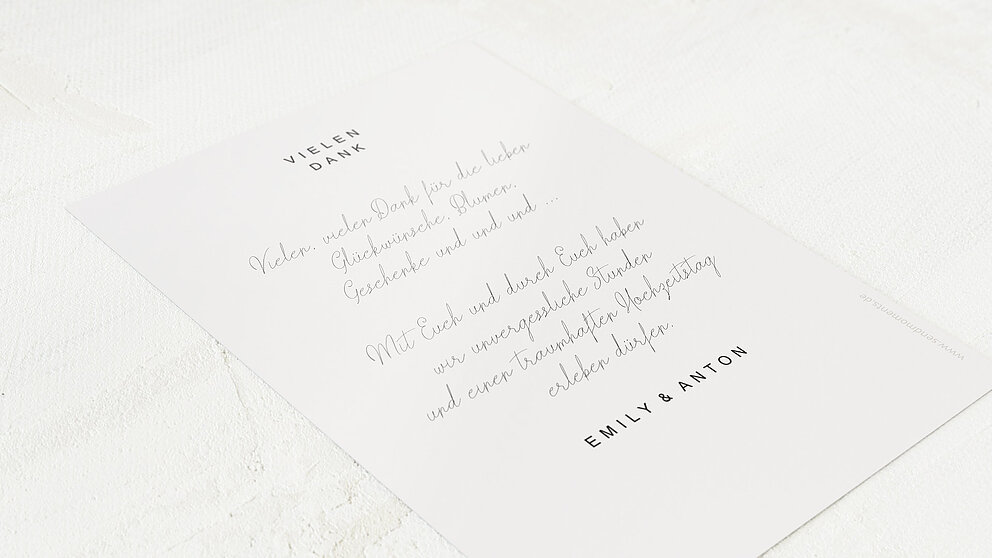 VIELEN
DANK
Vielen, vielen Dank für die lieben
Glückwünsche, Blumen,
Geschenke und und und ...
Mit Euch und durch Euch haben
wir unvergessliche Stunden
und einen traumhaften Hochzeitstag
erleben dürfen.
EMILY & ANTON
www.sendmoments.de